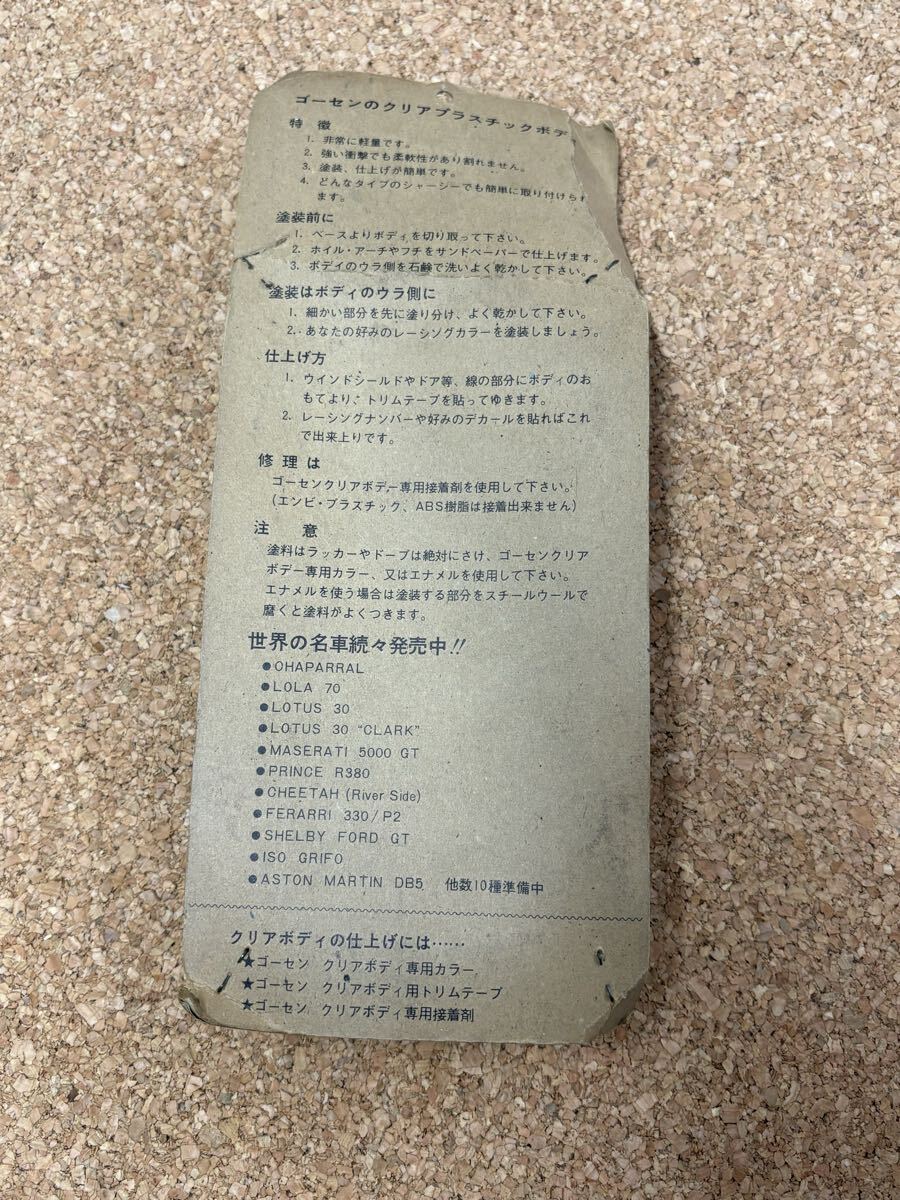 ゴーセンのクリアプラスチックボデ
特徴
1. 非常に軽量です。
2. 強い衝撃でも柔軟性があり割れません。
3. 塗装、仕上げが簡単です。
4. どんなタイプのシャーシーでも簡単に取り付けられ
ます。
塗装前に
1. ベースよりボディを切り取って下さい。
2. ホイル・アーチやフチをサンドペーパーで仕上げます。
3. ボデイのウラ側を石鹸で洗いよく乾かして下さい。
塗装はボディのウラ側に
1. 細かい部分を先に塗り分け、よく乾かして下さい。
2. あなたの好みのレーシングカラーを塗装しましょう。
仕上げ方
1. ウインドシールドやドア等、線の部分にボディのお
もてより、トリムテープを貼ってゆきます。
2. レーシングナンバーや好みのデカールを貼ればこれ
で出来上りです。
修理は
ゴーセンクリアボデー専用接着剤を使用して下さい。
(エンビ・プラスチック、ABS樹脂は接着出来ません)
注意
塗料はラッカーやドープは絶対にさけ、ゴーセンクリア
ボデー専用カラー、又はエナメルを使用して下さい。
エナメルを使う場合は塗装する部分をスチールウールで
磨くと塗料がよくつきます。
世界の名車続々発売中!!
●CHAPARRAL
●LOLA 70
●LOTUS 30
●LOTUS 30 “CLARK”
●MASERATI 5000 GT
●PRINCE R380
●CHEETAH (River Side)
●FERARRI 330/P2
●SHELBY FORD GT
●ISO GRIFO
●ASTON MARTIN DB5 他数10種準備中
クリアボディの仕上げには……
★ゴーセン クリアボディ専用カラー
★ゴーセン クリアボディ用トリムテープ
★ゴーセン クリアボディ専用接着剤